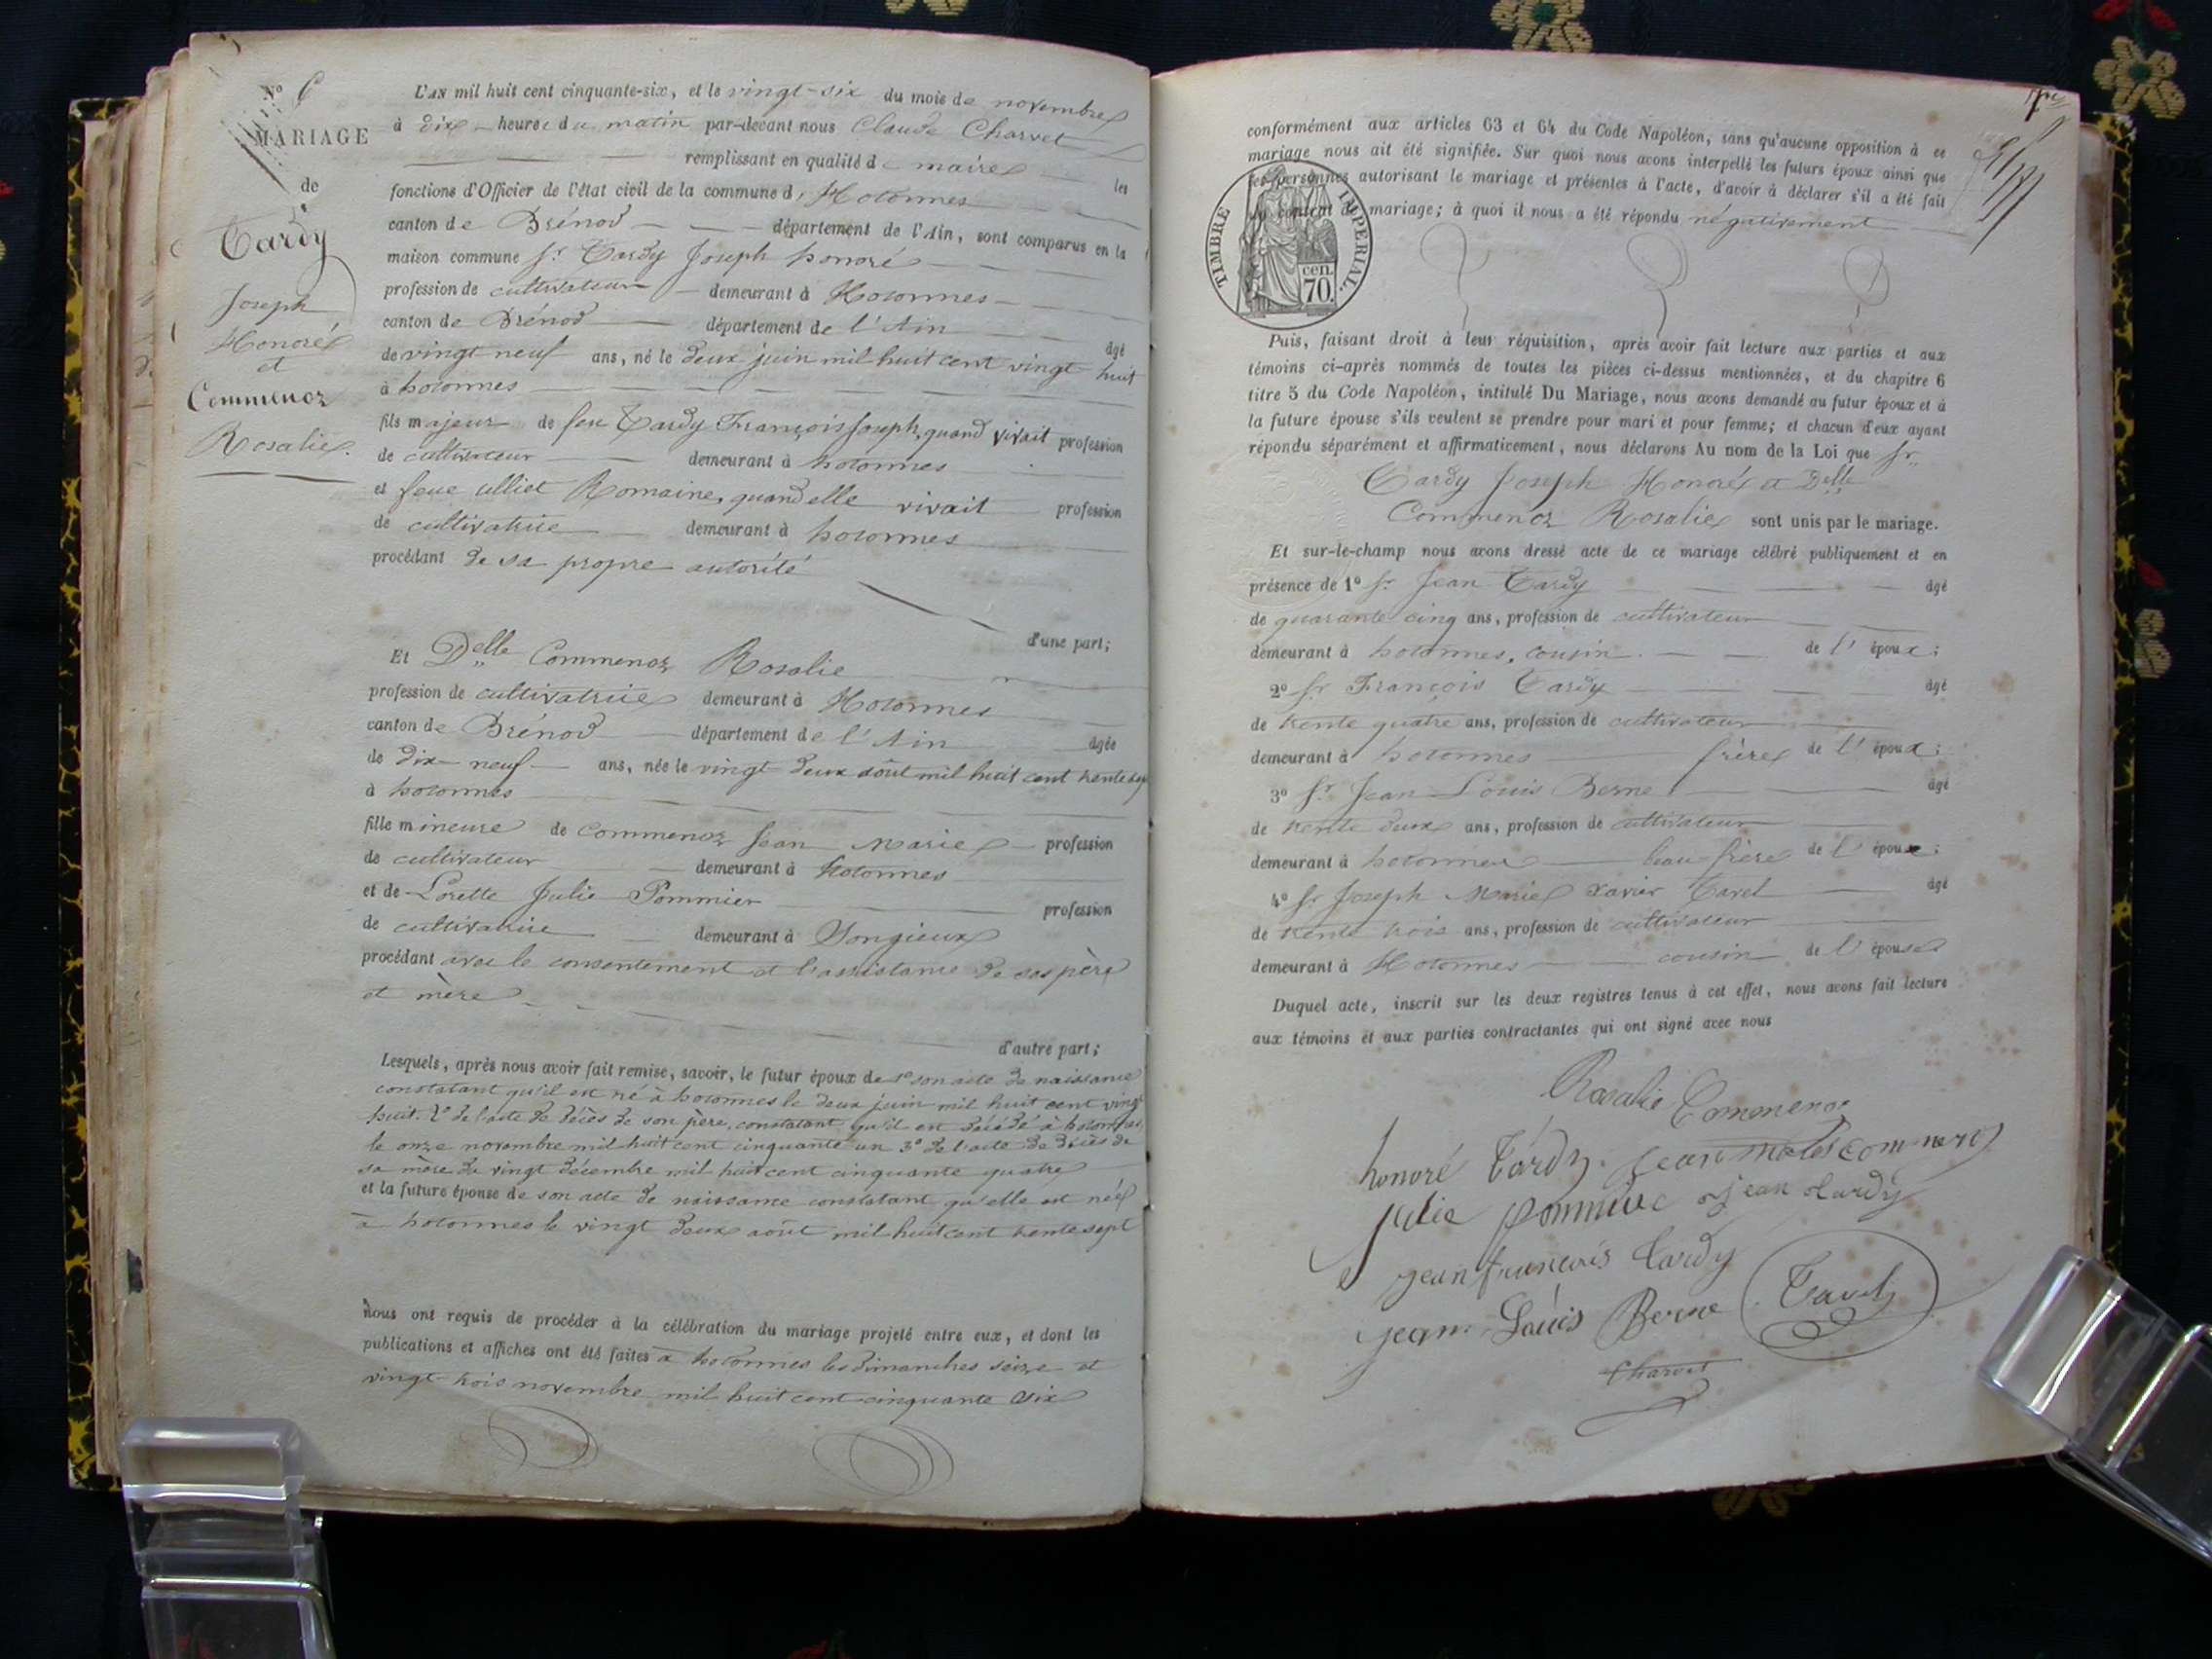 Nº 6
MARIAGE
de
Tardy
Joseph
Honoré
et
Commenoz
Rosalie.
L'AN mil huit cent cinquante-six, et le vingt-six du mois de novembre
à dix heures du matin par-devant nous Claude Charvet
remplissant en qualité de maire les
fonctions d'Officier de l'état civil de la commune d' Hotonnes
canton de Brénod département de l'Ain, sont comparus en la
maison commune Sr Tardy Joseph honoré
profession de cultivateur demeurant à Hotonnes
canton de Brénod département de l'Ain
âgé
de vingt neuf ans, né le deux juin mil huit cent vingt huit
à hotonnes
fils majeur de feu Tardy François Joseph, quand vivait profession
de cultivateur demeurant à hotonnes
et feue Romaine, quand elle vivait profession
de cultivatrice demeurant à hotonnes
procédant de sa propre autorité
d'une part;
Et Delle Commenoz Rosalie
profession de cultivatrice demeurant à Hotonnes
canton de Brénod département de l'Ain âgée
de dix-neuf ans, née le vingt deux août mil huit cent trente sept
à hotonnes
fille mineure de Commenoz Jean Marie profession
de cultivateur demeurant à Hotonnes
et de Lorette Julie Pommier profession
de cultivatrice demeurant à Songieux
procédant avec le consentement et l'assistance de ses père
et mère
d'autre part;
Lesquels, après nous avoir fait remise, savoir, le futur époux de 1º son acte de naissance
constatant qu'il est né à hotonnes le deux juin mil huit cent vingt
huit. 2º de l'acte de décès de son père, constatant qu'il est décédé à hotonnes
le onze novembre mil huit cent cinquante un 3º de l'acte de décès de
sa mère du vingt décembre mil huit cent cinquante quatre
et la future épouse de son acte de naissance constatant qu'elle est née
à hotonnes le vingt deux août mil huit cent trente sept
Nous ont requis de procéder à la célébration du mariage projeté entre eux, et dont les
publications et affiches ont été faites à hotonnes les dimanches seize et
vingt trois novembre mil huit cent cinquante six
conformément aux articles 63 et 64 du Code Napoléon, sans qu'aucune opposition à ce
mariage nous ait été signifiée. Sur quoi nous avons interpellé les futurs époux ainsi que
les personnes autorisant le mariage et présentes à l'acte, d'avoir à déclarer s'il a été fait
un contrat de mariage; à quoi il nous a été répondu négativement
TIMBRE IMPÉRIAL.
cen.
70.
Puis, faisant droit à leur réquisition, après avoir fait lecture aux parties et aux
témoins ci-après nommés de toutes les pièces ci-dessus mentionnées, et du chapitre 6
titre 5 du Code Napoléon, intitulé Du Mariage, nous avons demandé au futur époux et à
la future épouse s'ils veulent se prendre pour mari et pour femme; et chacun d'eux ayant
répondu séparément et affirmativement, nous déclarons Au nom de la Loi que Sr
Tardy Joseph Honoré et Delle
Commenoz Rosalie sont unis par le mariage.
Et sur-le-champ nous avons dressé acte de ce mariage célébré publiquement et en
présence de 1º Sr Jean Tardy âgé
de quarante cinq ans, profession de cultivateur
demeurant à hotonnes, cousin de l' époux;
2º Sr François Tardy âgé
de trente quatre ans, profession de cultivateur
demeurant à hotonnes frère de l' époux;
3º Sr Jean Louis Berne âgé
de trente deux ans, profession de cultivateur
demeurant à hotonnes beau-frère de l' époux;
4º Sr Joseph Marie Xavier Tavel âgé
de trente trois ans, profession de cultivateur
demeurant à Hotonnes cousin de l' épouse
Duquel acte, inscrit sur les deux registres tenus à cet effet, nous avons fait lecture
aux témoins et aux parties contractantes qui ont signé avec nous
Rosalie Commenoz
honoré Tardy. Jean
Julie jean tardy
jean françois tardy
jean Louis Berne Tavel
Charvet